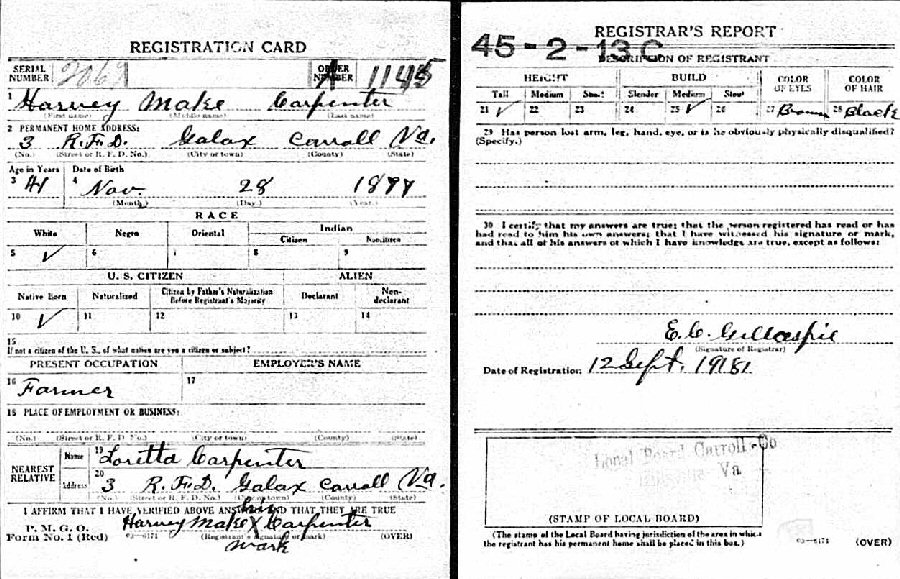 REGISTRATION CARD
SERIAL NUMBER 2069 ORDER NUMBER 1145
1 Harvey Make Carpenter
(First name) (Middle name) (Last name)
2 PERMANENT HOME ADDRESS:
3 R.F.D. Galax Carroll Va.
(No.) (Street or R. F. D. No.) (City or town) (County) (State)
Age in Years Date of Birth
3 41 4 Nov. 28 1877
(Month.) (Day.) (Year.)
RACE
White Negro Oriental Indian
Citizen Noncitizen
5 ✓ 6 7 8 9
U. S. CITIZEN ALIEN
Native Born Naturalized Citizen by Father's Naturalization Before Registrant's Majority Declarant Non-declarant
10 ✓ 11 12 13 14
15
If not a citizen of the U. S., of what nation are you a citizen or subject?
PRESENT OCCUPATION EMPLOYER'S NAME
16 Farmer 17
18 PLACE OF EMPLOYMENT OR BUSINESS:
(No.) (Street or R. F. D. No.) (City or town) (County) (State)
NEAREST RELATIVE Name 19 Loretta Carpenter
Address 20 3 R.F.D. Galax Carroll Va.
(No.) (Street or R. F. D. No.) (City or town) (County) (State)
I AFFIRM THAT I HAVE VERIFIED ABOVE ANSWERS AND THAT THEY ARE TRUE
his
Harvey Make X Carpenter
P. M. G. O.
Form No. 1 (Red) 03—6171 (Registrant's signature or mark) (OVER)
mark
REGISTRAR'S REPORT
45-2-13 C
DESCRIPTION OF REGISTRANT
HEIGHT BUILD COLOR OF EYES COLOR OF HAIR
Tall Medium Short Slender Medium Stout
21 ✓ 22 23 24 25 ✓ 26 27 Brown 28 Black
29 Has person lost arm, leg, hand, eye, or is he obviously physically disqualified?
(Specify.)
30 I certify that my answers are true; that the person registered has read or has
had read to him his own answers; that I have witnessed his signature or mark,
and that all of his answers of which I have knowledge are true, except as follows:
E.C. Gillaspie
(Signature of Registrar)
Date of Registration 12 Sept. 1918
Local Board Carroll Co
Va
(STAMP OF LOCAL BOARD)
(The stamp of the Local Board having jurisdiction of the area in which
the registrant has his permanent home shall be placed in this box.) 03—6171 (OVER)